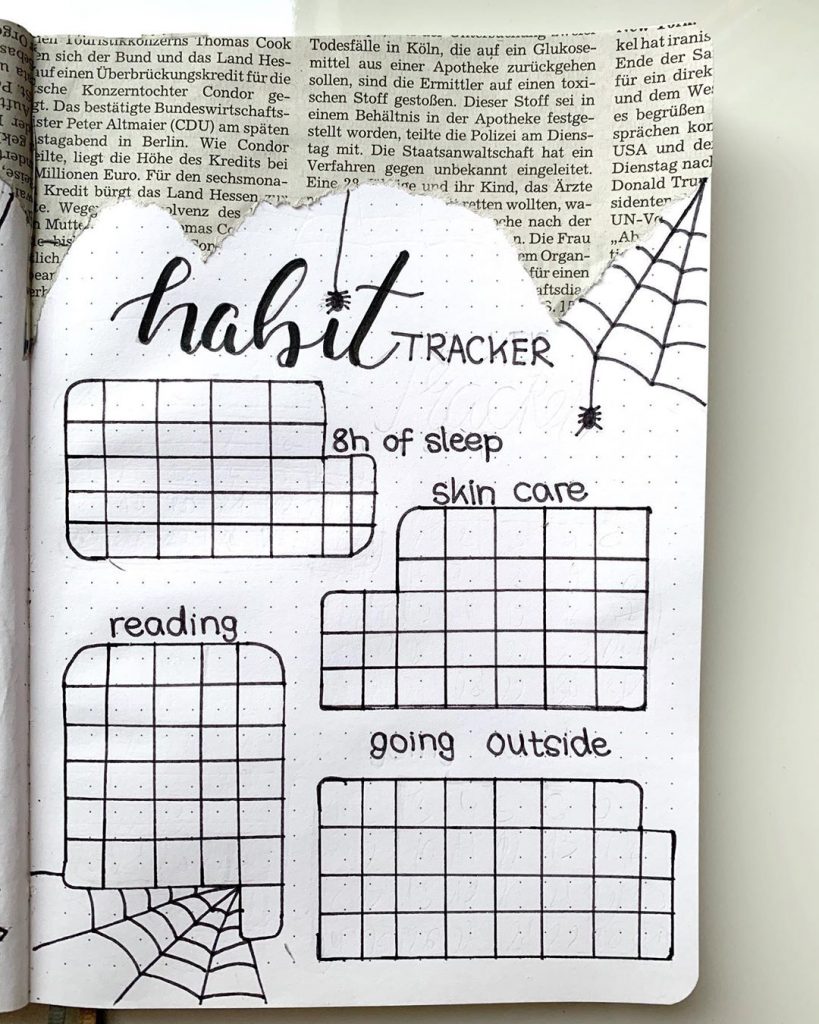 Touristikkonzerns Thomas Cook
en sich der Bund und das Land Hes-
auf einen Überbrückungskredit für die
sche Konzerntochter Condor ge-
gt. Das bestätigte Bundeswirtschafts-
ster Peter Altmaier (CDU) am späten
stagabend in Berlin. Wie Condor
eilte, liegt die Höhe des Kredits bei
Millionen Euro. Für den sechsmona-
Kredit bürgt das Land Hessen
e. Wege olvenz des
Mutte omas Co
Todesfälle in Köln, die auf ein Glukose-
mittel aus einer Apotheke zurückgehen
sollen, sind die Ermittler auf einen toxi-
schen Stoff gestoßen. Dieser Stoff sei in
einem Behältnis in der Apotheke festge-
stellt worden, teilte die Polizei am Diens-
tag mit. Die Staatsanwaltschaft hat ein
Verfahren gegen unbekannt eingeleitet.
Eine und ihr Kind, das Ärzte
retten wollten, wa-
che nach der
n. Die Frau
em Organ-
für einen
aftsdia-
kel hat iranis
Ende der Sa
für ein direk
und dem Wes
es begrüßen
sprächen kon
USA und de
Dienstag nach
Donald Tru
sidenten
UN-Vo
„Ab
habit TRACKER
8h of sleep
skin care
reading
going outside